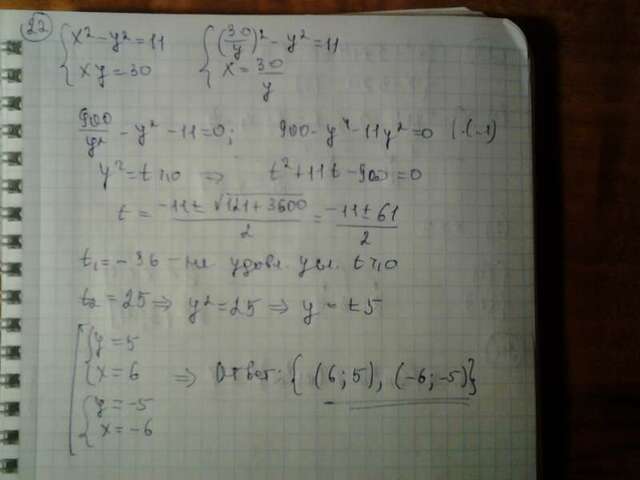 22
{ x² - y² = 11   { (30/y)² - y² = 11
{ xy = 30   { x = 30/y
900/y² - y² - 11 = 0;   900 - y⁴ - 11y² = 0 | ·(-1)
y² = t ≥ 0 ⇒ t² + 11t - 900 = 0
t = (-11 ± √(121 + 3600))/2 = (-11 ± 61)/2
t₁ = -36 - не удовл. усл. t ≥ 0
t₂ = 25 ⇒ y² = 25 ⇒ y = ±5
[ { y = 5
{ x = 6   ⇒ Ответ: { (6; 5), (-6; -5) }
{ y = -5
{ x = -6